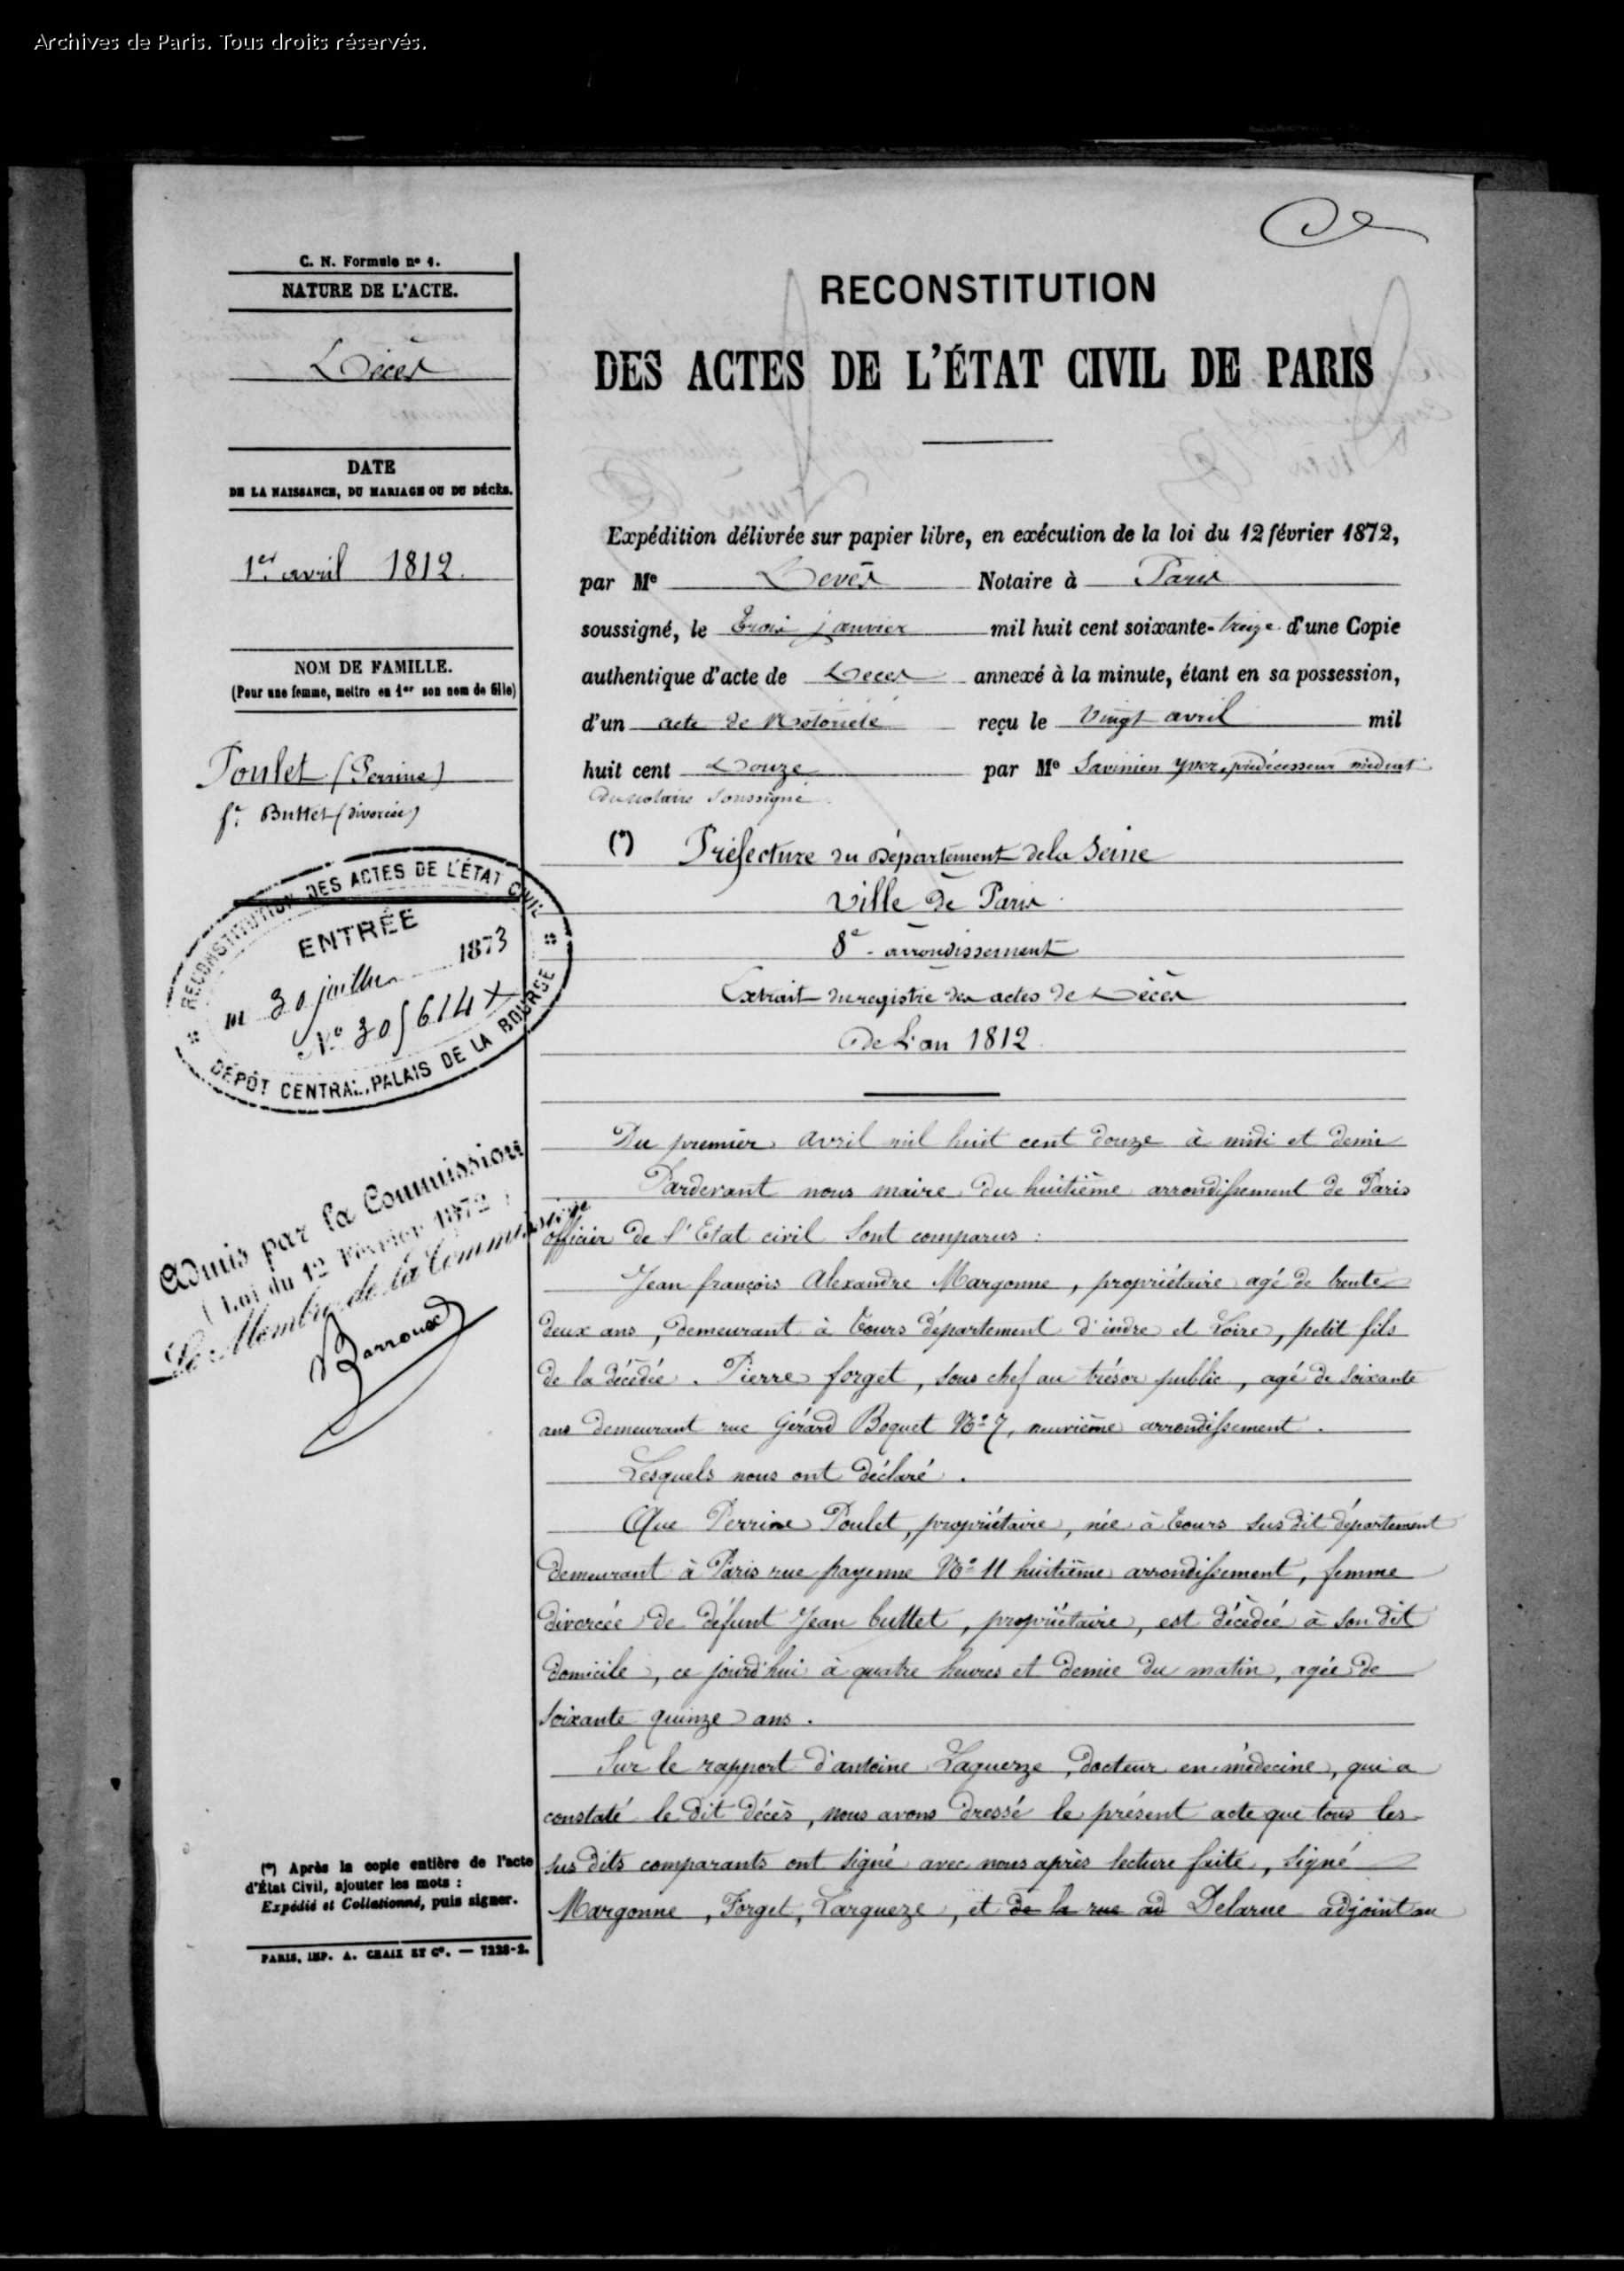 Archives de Paris. Tous droits réservés.
C. N. Formule nº 1.
NATURE DE L'ACTE.
Décès
DATE
DE LA NAISSANCE, DU MARIAGE OU DU DÉCÈS.
1er avril 1812.
NOM DE FAMILLE.
(Pour une femme, mettre en 1er son nom de fille)
Poulet (Perrine)
fe Buttet (divorcée)
RECONSTITUTION DES ACTES DE L'ÉTAT CIVIL
ENTRÉE
30 juillet 1873
Nº 305614
DÉPÔT CENTRAL, PALAIS DE LA BOURSE
Admis par la Commission
(Loi du 12 Février 1872)
Le Membre de la Commission
Barroux
(*) Après la copie entière de l'acte
d'État Civil, ajouter les mots :
Expédié et Collationné, puis signer.
PARIS, IMP. A. CHAIX ET Cº. — 7228-2.
RECONSTITUTION
DES ACTES DE L'ÉTAT CIVIL DE PARIS
Expédition délivrée sur papier libre, en exécution de la loi du 12 février 1872,
par Me Devès Notaire à Paris
soussigné, le trois janvier mil huit cent soixante-treize d'une Copie
authentique d'acte de Décès annexé à la minute, étant en sa possession,
d'un acte de Notoriété reçu le vingt avril mil
huit cent Douze par Me Savinien Yver, prédécesseur médiat
du notaire soussigné
(*) Préfecture du Département de la Seine
Ville de Paris
8e arrondissement
Extrait du registre des actes de Décès
De L'an 1812
Du premier avril mil huit cent douze à midi et demie
Pardevant nous maire du huitième arrondissement de Paris
officier de l'Etat civil sont comparus :
Jean françois Alexandre Margonne, propriétaire agé de trente
deux ans, demeurant à Tours département d'indre et Loire, petit fils
de la décédée. Pierre forget, sous chef au trésor public, agé de soixante
ans demeurant rue Gérard Boquet Nº 7, neuvième arrondissement.
Lesquels nous ont déclaré.
Que Perrine Poulet, propriétaire, née à Tours sus dit département
demeurant à Paris rue payenne Nº 11 huitième arrondissement, femme
divorcée de défunt Jean buttet, propriétaire, est décédée à son dit
domicile, ce jourd'hui à quatre heures et demie du matin, agée de
soixante quinze ans.
Sur le rapport d'antoine Laguerze, docteur en médecine, qui a
constaté le dit décès, nous avons dressé le présent acte que tous les
sus dits comparants ont signé avec nous après lecture faite, signé
Margonne, Forget, Largueze, et de la rue ad Delarue adjoint au